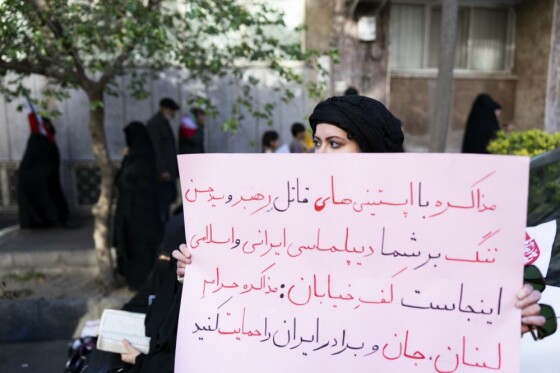 مذاکره با اپستینی‌های قاتل رهبر و سید حسن
ننگ بر شما دیپلماسی ایرانی و اسلامی
اینجاست کف خیابان: مذاکره حرام
لبنان، جان و برادر ایران را حمایت کنید